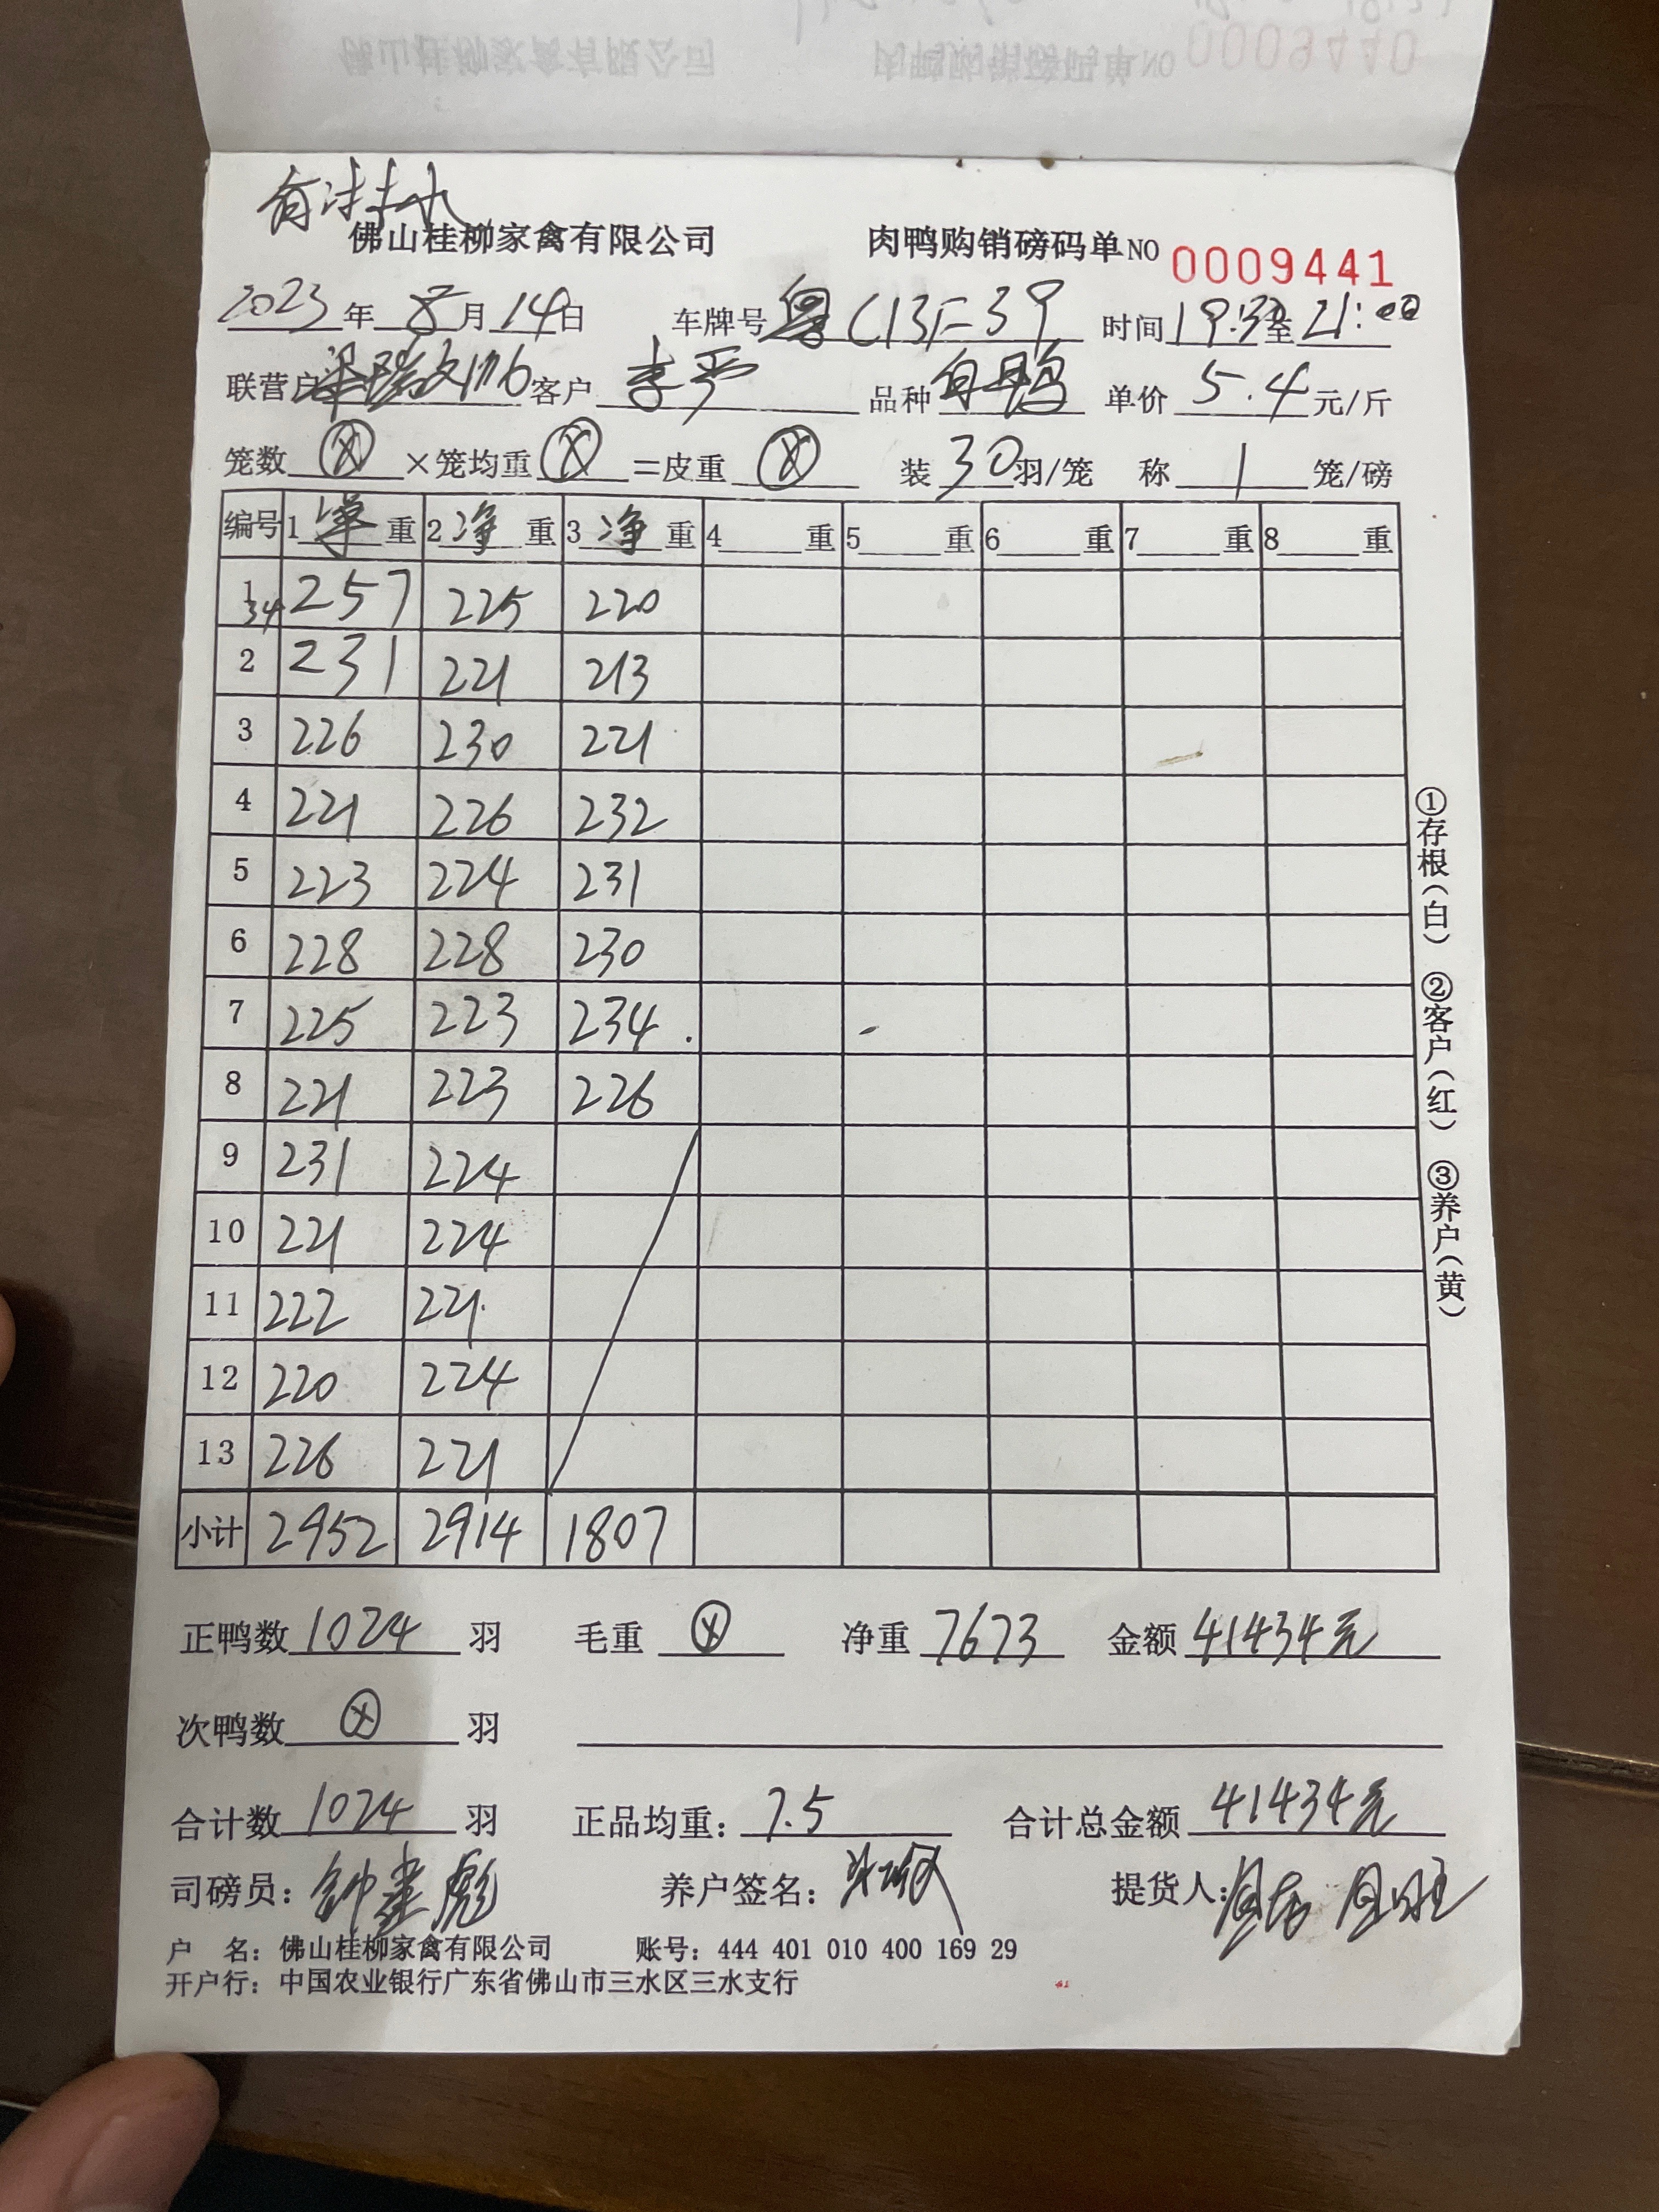 佛山桂柳家禽有限公司 肉鸭购销磅码单 NO 0009440
有
佛山桂柳家禽有限公司 肉鸭购销磅码单 NO 0009441
2023年8月14日 车牌号粤C13F39 时间19:30至21:00
联营户梁瑞文 客户李严 品种白鸭 单价5.4元/斤
笼数ⓧ×笼均重ⓧ=皮重ⓧ 装30羽/笼 称1笼/磅
编号 1净重 2净重 3净重 4重 5重 6重 7重 8重
1 34 257 225 220
2 231 221 213
3 226 230 221
4 221 226 232
5 223 224 231
6 228 228 230
7 225 223 234.
8 221 223 226
9 231 224
10 221 224
11 222 221.
12 220 224
13 226 221
小计 2952 2914 1807
正鸭数1024羽 毛重ⓧ 净重7673 金额41434元
次鸭数ⓧ羽
合计数1024羽 正品均重:7.5 合计总金额41434元
司磅员:钟建彪 养户签名: 提货人:
户 名:佛山桂柳家禽有限公司 账号:444 401 010 400 169 29
开户行:中国农业银行广东省佛山市三水区三水支行
①存根(白) ②客户(红) ③养户(黄)